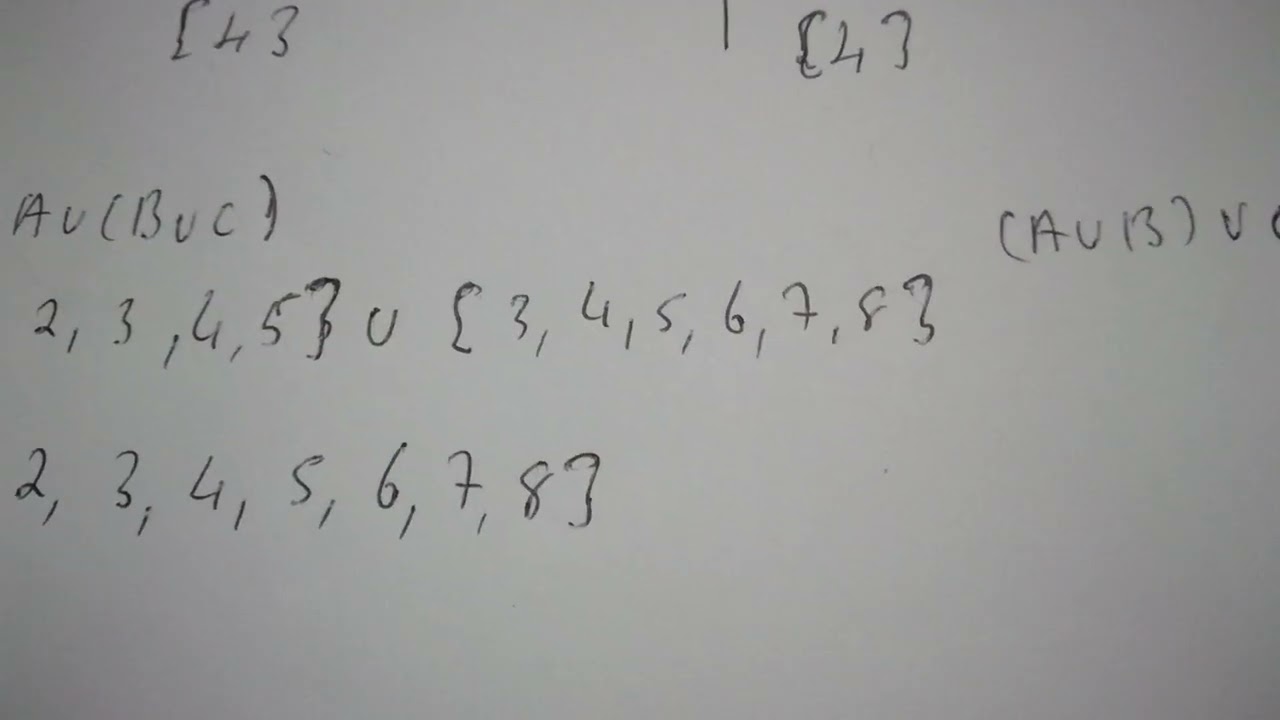 {4}
{4}
A∪(B∪C)
(A∪B)∪
2, 3, 4, 5} ∪ {3, 4, 5, 6, 7, 8}
2, 3, 4, 5, 6, 7, 8}